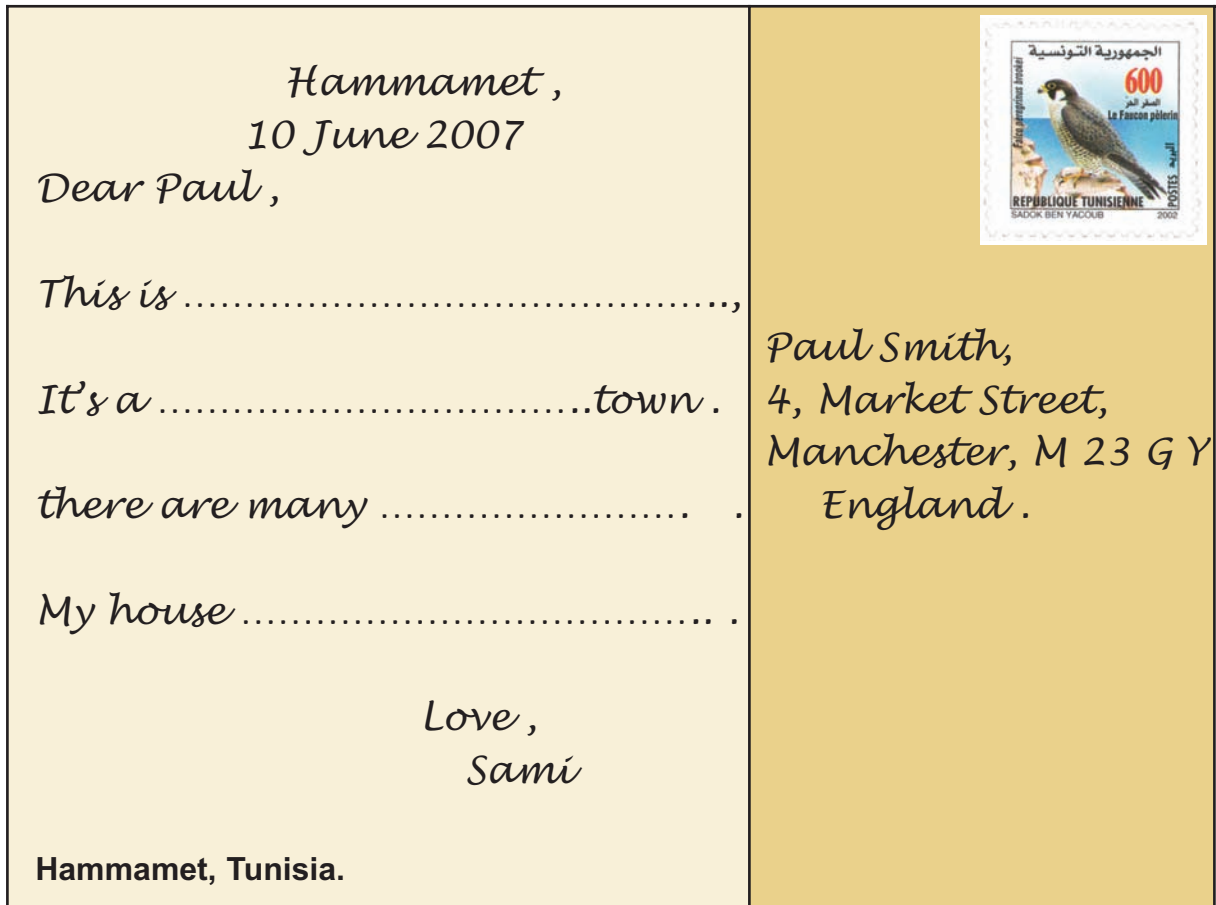 Hammamet ,
10 June 2007
Dear Paul ,
This is ……………………………………..,
It's a ……………………………..town .
there are many ……………………. .
My house ……………………………….. .
Love ,
Sami
Hammamet, Tunisia.
الجمهورية التونسية
600
الصقر الحر
Le Faucon pèlerin
Falco peregrinus brookei
البريد
POSTES
REPUBLIQUE TUNISIENNE
SADOK BEN YACOUB 2002
Paul Smith,
4, Market Street,
Manchester, M 23 G Y
England .